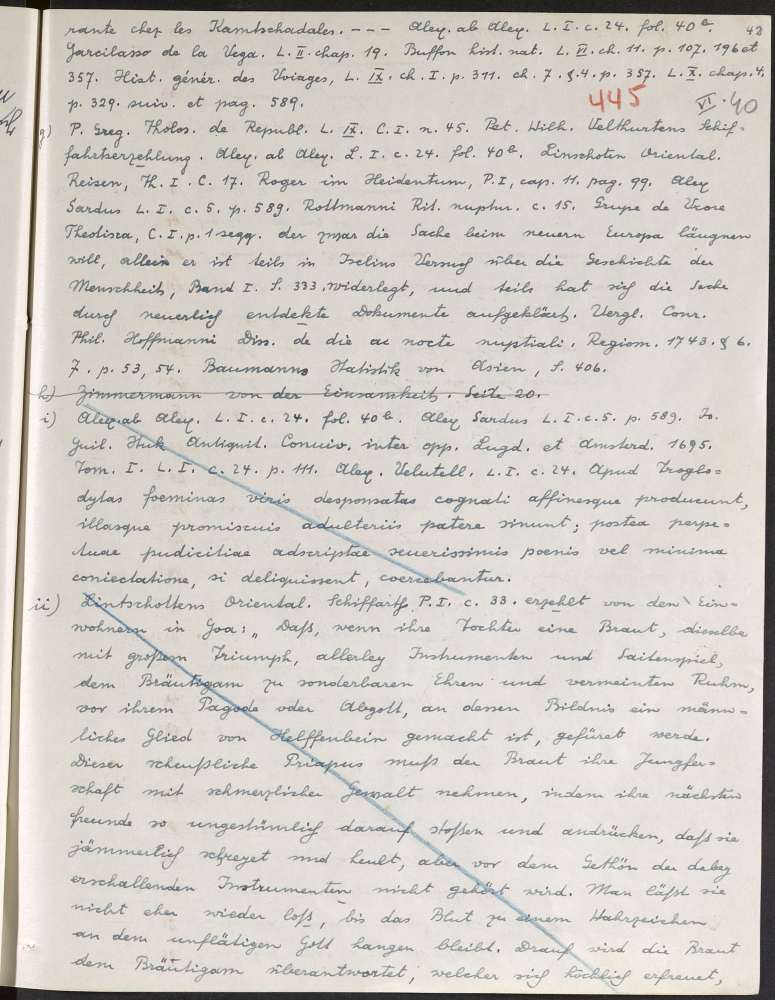 rante chez les Kamtschadales. --- Alex. ab Alex. L. I. c. 24. fol. 40 b. 42
Garcilasso de la Vega. L. II. chap. 19. Buffon hist. nat. L. VI. ch. 11. p. 107. 196 et
357. Hist. génér. des Voiages, L. IX. ch. I. p. 311. ch. 7. §. 4. p. 357. L. X. chap. 4.
p. 329. suiv. et pag. 589. 445 VI. 40
g) P. Greg. Tholos. de Republ. L. IX. C. I. n. 45. Pet. Wilh. Velthurtens Schif-
fahrtserzehlung. Alex. ab Alex. L. I. c. 24. fol. 40 b. Linschoten Oriental.
Reisen, Th. I. C. 17. Roger im Heidentum, P. I, cap. 11. pag. 99. Alex
Sardus L. I. c. 5. p. 589. Rottmanni Rit. nuptur. c. 15. Grupe de Uxore
Theotisca, C. I. p. 1 seqq. der zwar die Sache beim neuern Europa läugnen
will, allein er ist teils in Iselins Versuch über die Geschichte der
Menschheit, Band I. S. 333. widerlegt, und teils hat sich die Sache
durch neuerlich entdekte Dokumente aufgeklärt. Vergl. Conr.
Phil. Hoffmanni Diss. de die ac nocte nuptiali. Regiom. 1743. § 6.
7. p. 53, 54. Baumanns Statistik von Asien, S. 406.
h) Zimmermann von der Einsamkeit. Seite 20.
i) Alex ab Alex. L. I. c. 24. fol. 40 b. Alex Sardus L. I. c. 5. p. 589. Jo.
Guil. Stuk Antiquit. Conuiv. inter opp. Lugd. et Amsterd. 1695.
Tom. I. L. I. c. 24. p. 111. Alex. Velutell. L. I. c. 24. Apud Troglo-
dytas foeminas viris desponsatas cognati affinesque producunt,
illasque promiscuis adulteriis patere sinunt; postea perpe-
tuae pudicitiae adscriptae seuerissimis poenis vel minima
coniectatione, si deliquissent, coercebantur.
ii) Lintschottens Oriental. Schiffarth P. I. c. 33. erzehlt von den Ein-
wohnern in Goa: „Daß, wenn ihre Tochter eine Braut, dieselbe
mit großem Triumph, allerley Instrumenten und Saitenspiel,
dem Bräutigam zu sonderbaren Ehren und vermeinten Ruhm,
vor ihrem Pagode oder Abgott, an dessen Bildnis ein männ-
liches Glied von Helffenbein gemacht ist, gefüret werde.
Dieser scheußliche Priapus muß der Braut ihre Jungfer-
schaft mit schmerzlicher Gewalt nehmen, indem ihre nächsten
freunde so ungestümlich darauf stoßen und andrücken, daß sie
jämmerlich schreyet und heult, aber vor dem Gethön der dabey
erschallenden Instrumenten nicht gehört wird. Man läßt sie
nicht eher wieder loß, bis das Blut zu einem Wahrzeichen
an dem unflätigen Gott hangen bleibt. Drauf wird die Braut
dem Bräutigam überantwortet, welcher sich höchlich erfreuet,